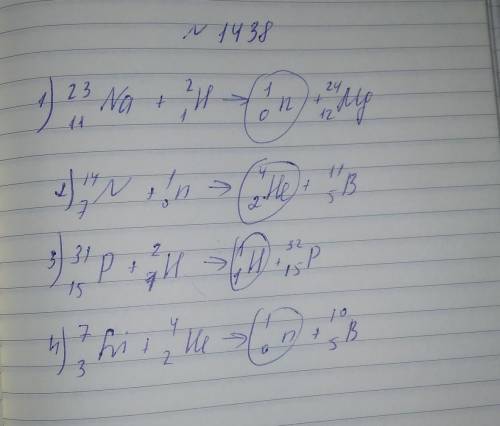 № 1438
1) ²³₁₁Na + ²₁H → ¹₀n + ²⁴₁₂Mg
2) ¹⁴₇N + ¹₀n → ⁴₂He + ¹¹₅B
3) ³¹₁₅P + ²₁H → ¹₁H + ³²₁₅P
4) ⁷₃Li + ⁴₂He → ¹₀n + ¹⁰₅B